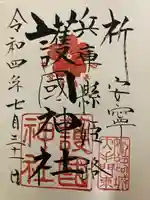 祈安寧
兵庫縣姫路
護國神社
令和四年七月三十一日
護國
神社